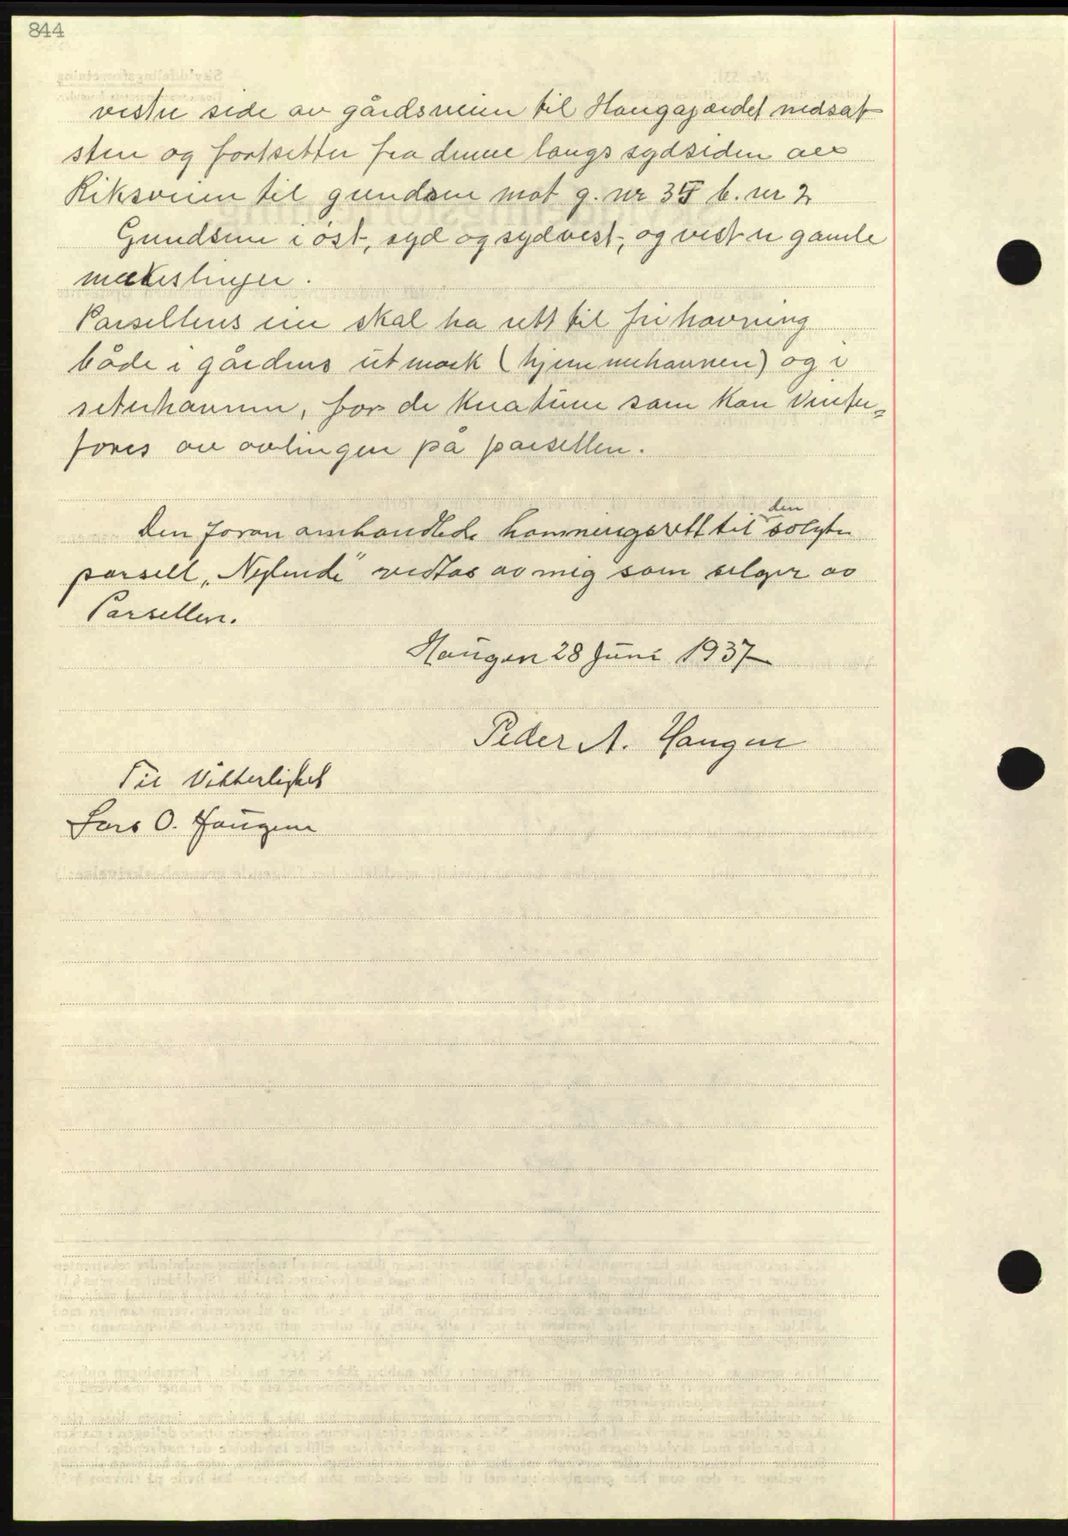 844
vestre side av gårdsveien til Haugagjærdet nedsat
sten og fortsetter fra denne langs sydsiden av
Riksveien til grendsen mot g. nr 35 b. nr 2
Grendsene i øst, syd og sydvest, og vest er gamle
merkeslinjer.
Parsellens eier skal ha rett til fri havning
både i gårdens utmark (hjemmehavnen) og i
seterhavnen, for de kreaturer som kan vinter=
fores av avlingen på parsellen.
Den foran omhandlede havningsrett til den solgte
parsell „Nylende" vedtas av mig som selger av
Parsellen.
Haugen 28 Juni 1937
Peder A. Haugen
Til Vitterlighet
Lars O. Haugen